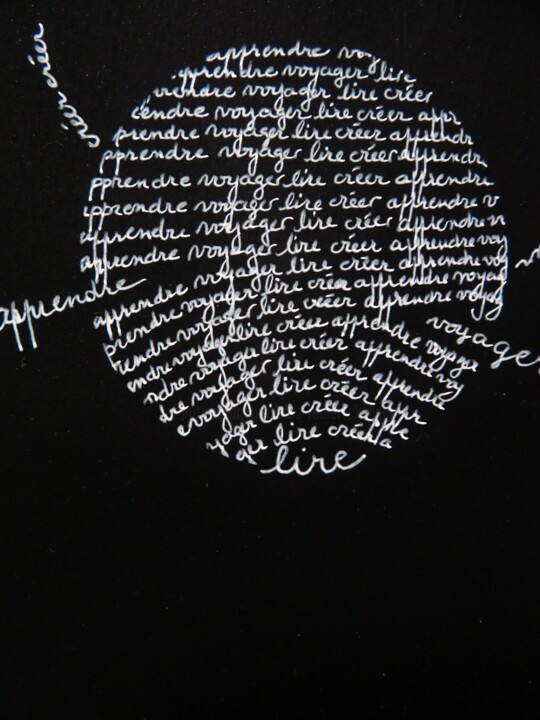 créer créer
apprendre voy
pprendre voyager lire
rendre voyager lire créer
endre voyager lire créer appr
prendre voyager lire créer apprendr
pprendre voyager lire créer apprendr
pprendre voyager lire créer apprendre
apprendre voyager lire créer apprendre v
apprendre voyager lire créer apprendre v
apprendre voyager lire créer apprendre voy
apprendre voyager lire créer apprendre voya
apprendre
apprendre voyager lire créer apprendre voyag
prendre voyager lire créer apprendre voyag
voyager
rendre voyager lire créer apprendre voyager
endre voyager lire créer apprendre voy
ndre voyager lire créer apprendre
dre voyager lire créer appr
e voyager lire créer appre
yager lire créer a
ger lire